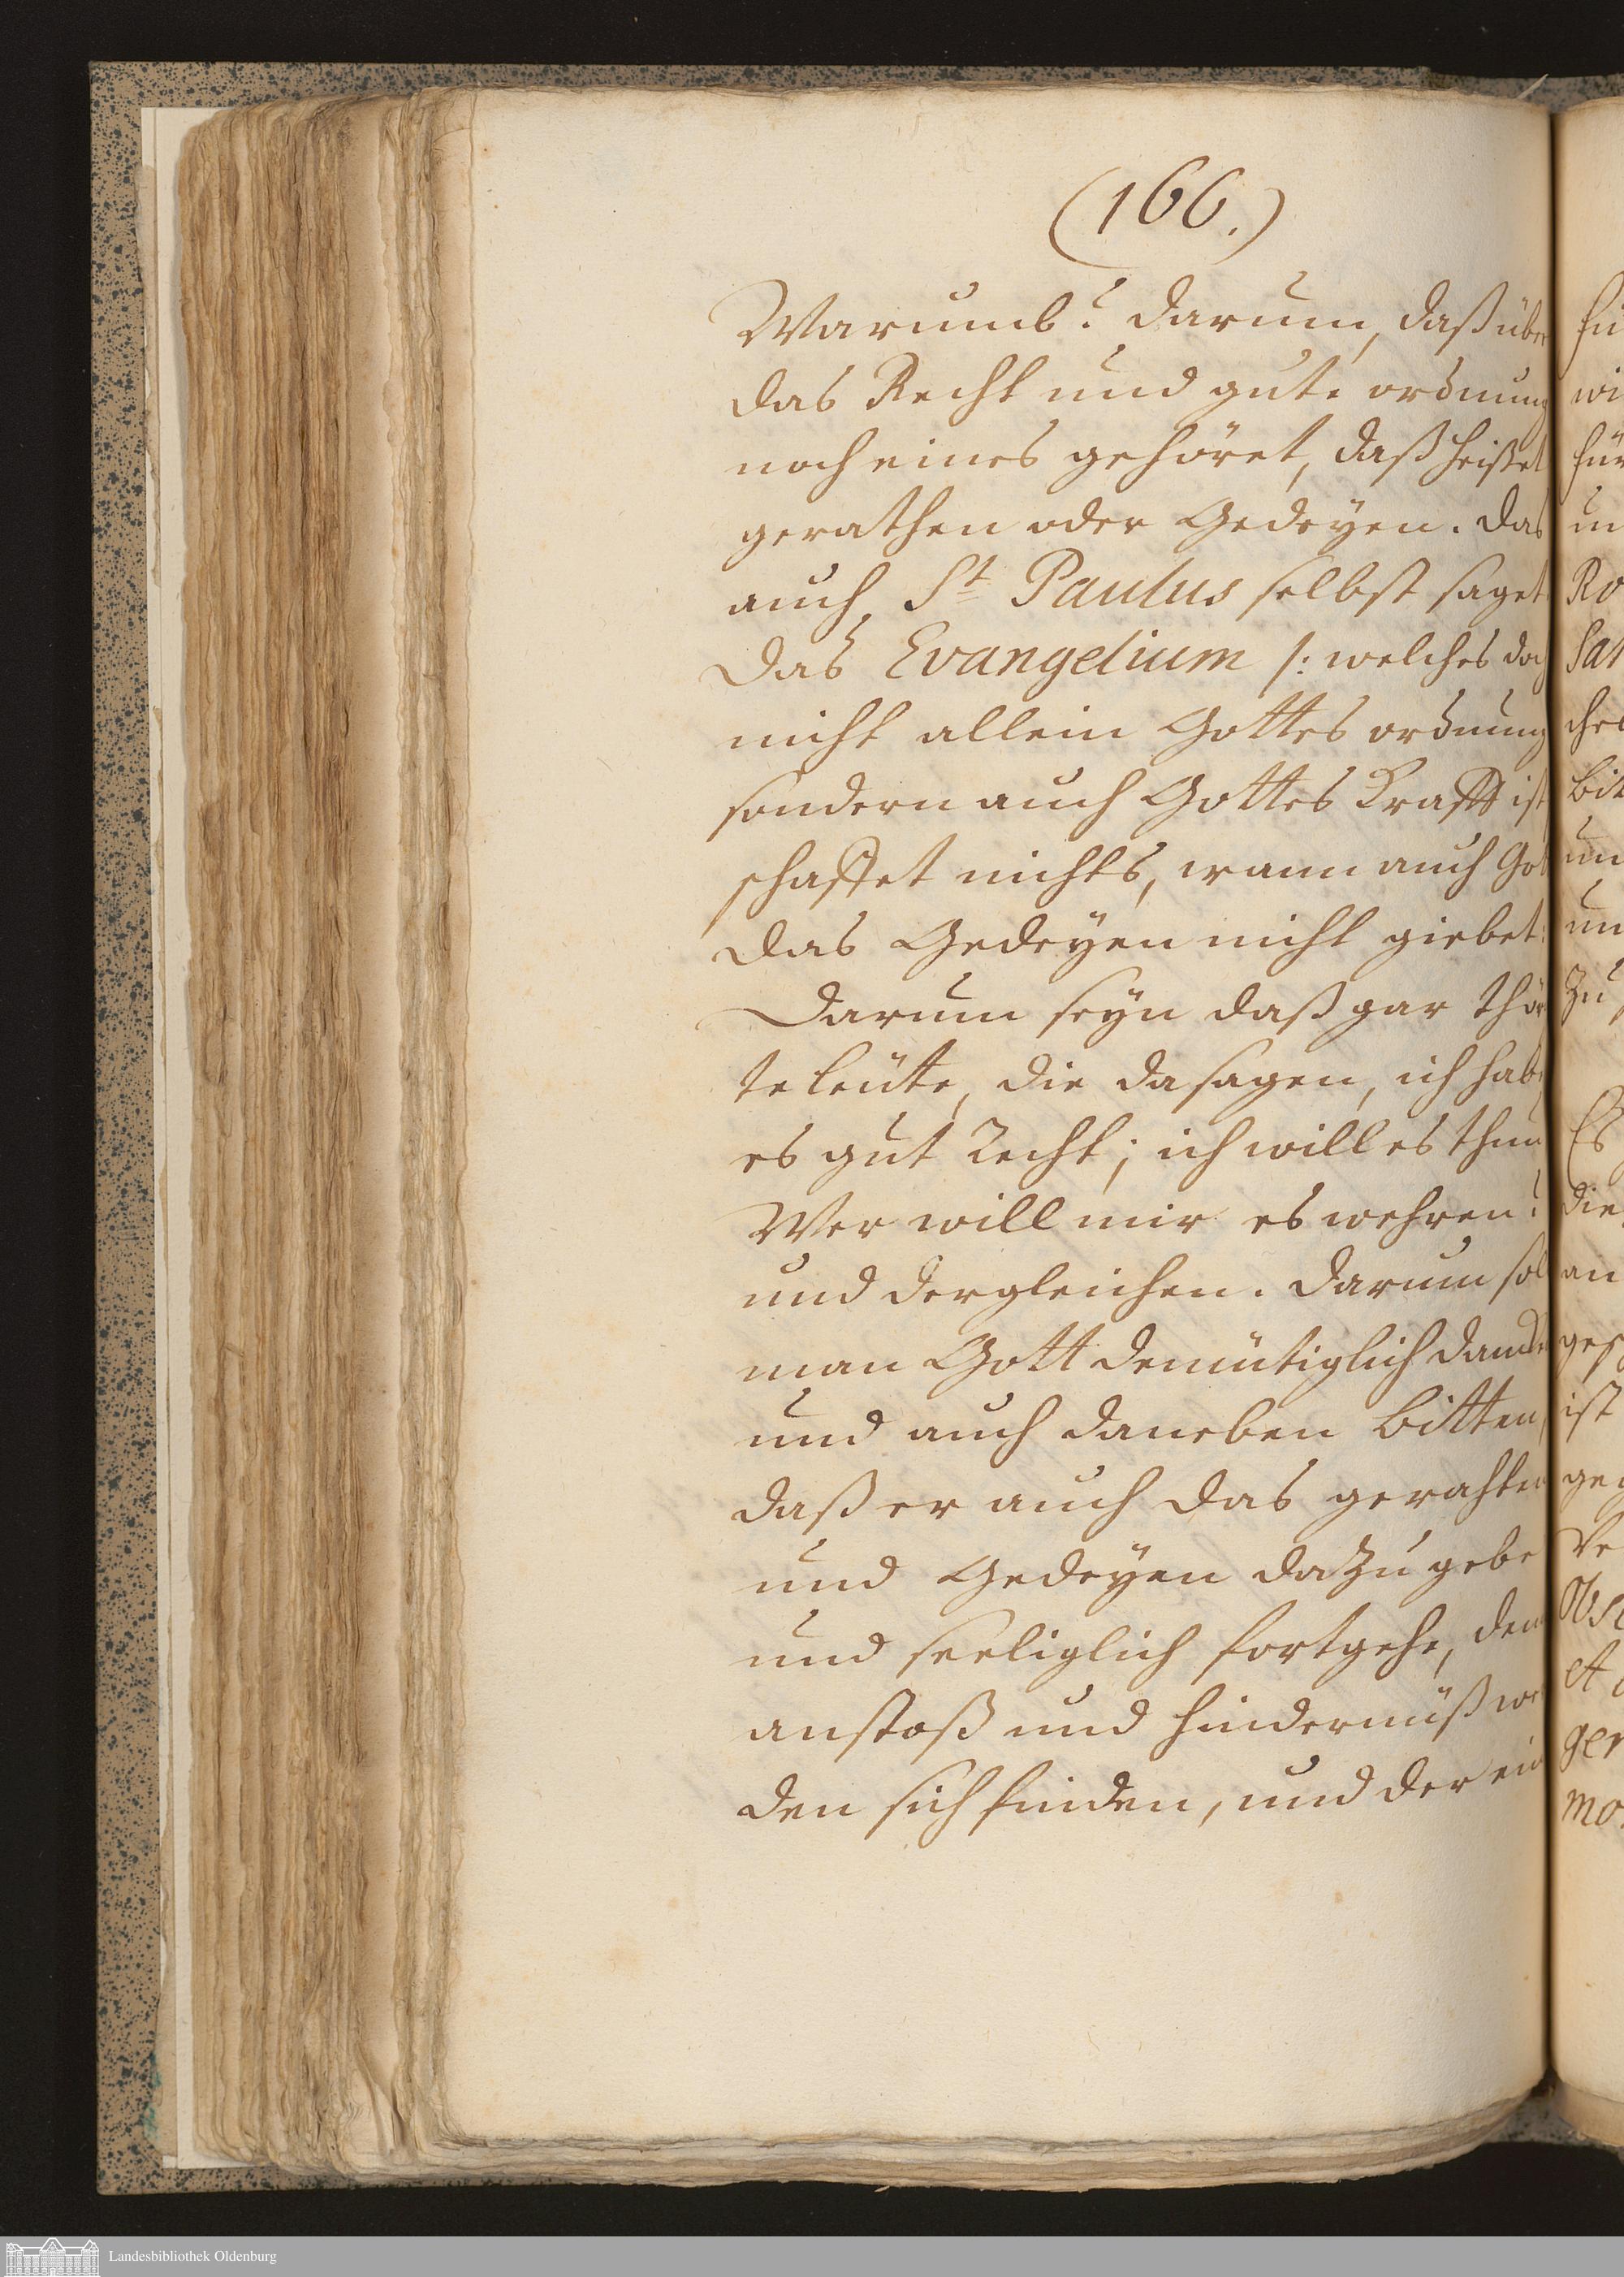 (166.)
Warumb? darum, daß über
das Recht und gute ordnung
noch eines gehöret, daß heißet
gerathen oder Gedeyen. das
auch St Paulus selbst saget
das Evangelium /: welches doch
nicht allein Gottes ordnung
sondern auch Gottes Krafft ist
schaffet nichts, wann auch Got
das Gedeyen nicht giebet:
Darum seyn daß gar thör
te leüte, die da sagen, ich habe
es gut Recht; ich will es thun
Wer will mir es wehren?
und dergleichen. Darum sol
man Gott demütiglich dancken
und auch daneben bitten,
daß er auch das gerahten
und Gedeyen dazu gebe
und seeliglich fortgehe, den
anstoß und hindernüß wer
den sich finden, und der ein
Landesbibliothek Oldenburg